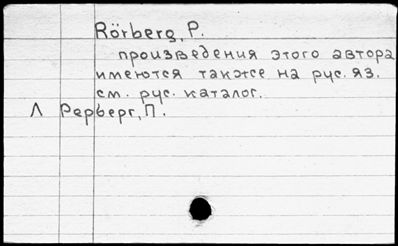 Rörberg, P.
произведения этого автора
имеются также на рус. яз.
см. рус. каталог.
Л Рерберг, П.